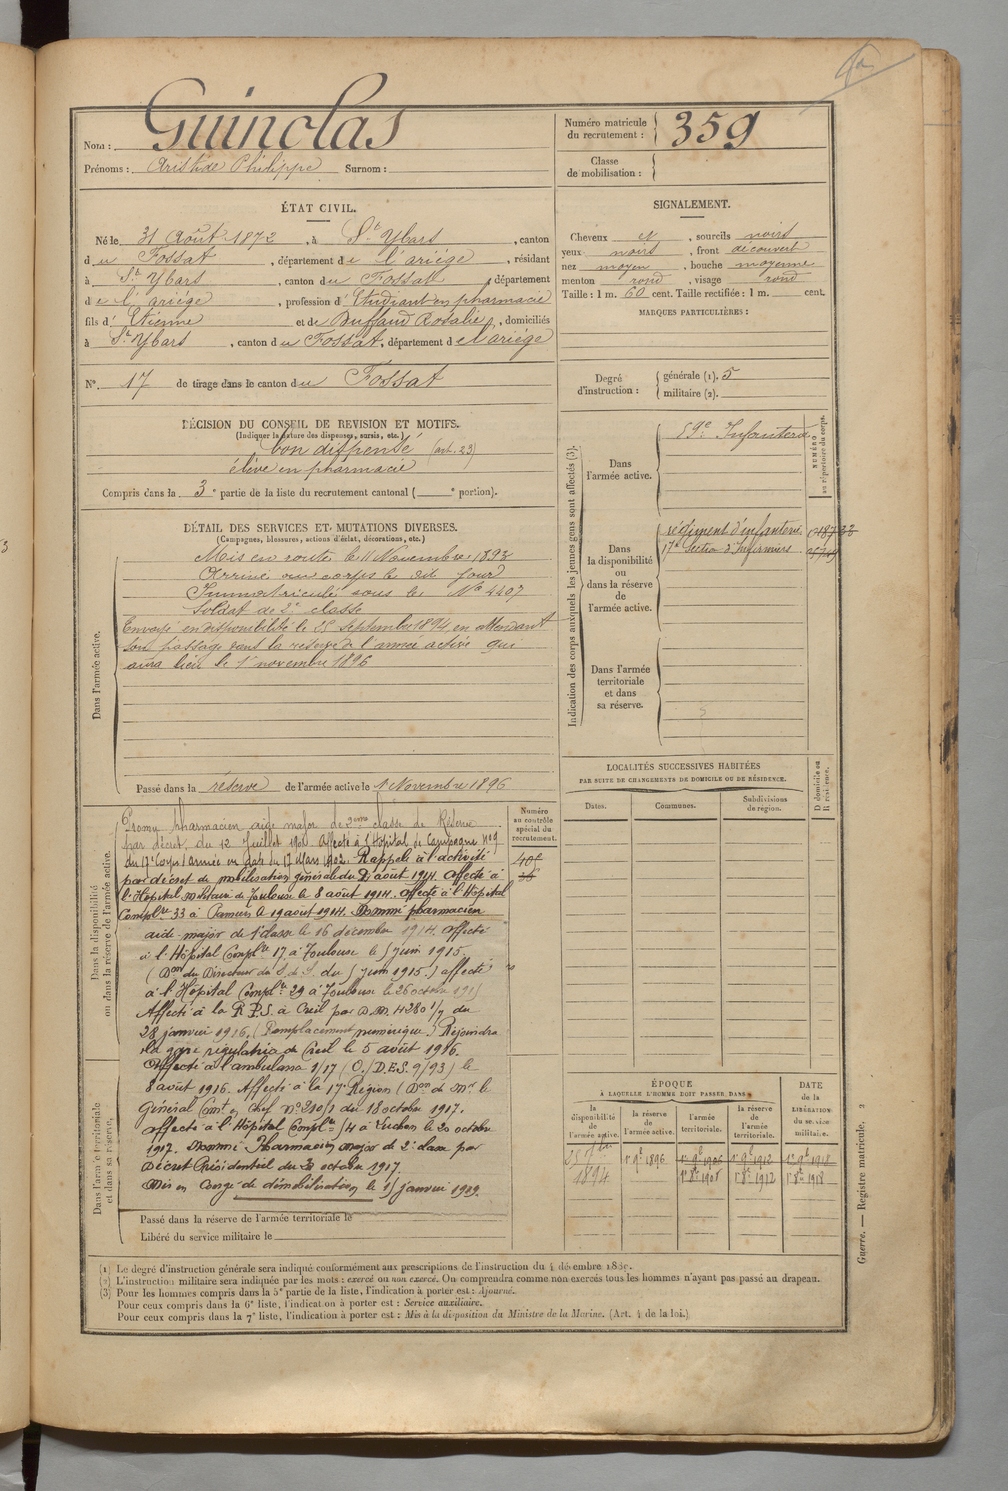 Guinolas
Nom :
Prénoms : Aristide Philippe Surnom :
Numéro matricule
du recrutement : 359
Classe
de mobilisation :
ÉTAT CIVIL.
Né le 31 Août 1872, à St Ybars, canton
du Fossat, département de l'ariége, résidant
à St Ybars, canton du Fossat, département
de l'ariége, profession d'Etudiant en pharmacie
fils d'Etienne et de Buffaud Rosalie, domiciliés
à St Ybars, canton du Fossat, département de l'ariége
N° 17 de tirage dans le canton du Fossat
SIGNALEMENT.
Cheveux et, sourcils noirs
yeux noirs, front découvert
nez moyen, bouche moyenne
menton rond, visage rond
Taille : 1 m. 60 cent. Taille rectifiée : 1 m. cent.
MARQUES PARTICULIÈRES :
Degré
d'instruction :
générale (1). 5
militaire (2).
DÉCISION DU CONSEIL DE REVISION ET MOTIFS.
(Indiquer la nature des dispenses, sursis, etc.)
bon dispensé (art. 23)
élève en pharmacie
Compris dans la 3e partie de la liste du recrutement cantonal ( e portion).
DÉTAIL DES SERVICES ET MUTATIONS DIVERSES.
(Campagnes, blessures, actions d'éclat, décorations, etc.)
Dans l'armée active.
Mis en route le 11 Novembre 1893
Arrivé au corps le dit jour
Immatriculé sous le No 4407
Soldat de 2e classe
Envoyé en disponibilité le 25 Septembre 1894, en attendant
son passage dans la réserve de l'armée active qui
aura lieu le 1er novembre 1896
Passé dans la réserve de l'armée active le 1 Novembre 1896
Indication des corps auxquels les jeunes gens sont affectés (3).
NUMÉRO
au répertoire du corps.
Dans
l'armée active.
59e Infanterie
Dans
la disponibilité
ou
dans la réserve
de
l'armée active.
régiment d'infanterie
17e Section d'Infirmiers
Dans l'armée
territoriale
et dans
sa réserve.
LOCALITÉS SUCCESSIVES HABITÉES
PAR SUITE DE CHANGEMENTS DE DOMICILE OU DE RÉSIDENCE.
D domicile ou
R résidence.
Dates.
Communes.
Subdivisions
de région.
Dans la disponibilité
ou dans la réserve de l'armée active.
Numéro
au contrôle
spécial du
recrutement.
Promu pharmacien aide major de 2eme classe de Réserve
par décret du 12 Juillet Affecté à l'Hôpital de Campagne No 9
du 17e Corps d'armée en date du 17 Mars 1902. Rappelé à l'activité
par décret de mobilisation générale du 2 août 1914. Affecté à
l'Hôpital militaire de Toulouse le 8 août 1914. Affecté à l'Hôpital
Complre 33 à Pamiers le 19 août 1914. Nommé pharmacien
aide-major de 1e classe le 16 décembre 1914. affecté
à l'Hôpital Complre 17 à Toulouse le 5 juin 1915.
(Don du Directeur du S. de S. du 5 juin 1915.) affecté
à l'Hôpital Complre 29 à Toulouse le 26 octobre 1915
Affecté à la R.P.S. à Creil par D.M. 4280 1/7 du
28 janvier 1916. (Remplacement numérique) Rejoindra
la gare régulatrice de Creil le 5 août 1916.
Affecté à l'ambulance 1/17 (O. D.E.S. 9/93) le
8 août 1916. Affecté à la 17e Région (Don de Mr le
Général Comt en Chef no 210/1 du 18 octobre 1917.
affecté à l'Hôpital Complre 14 à Luchon le 20 octobre
1917. Nommé Pharmacien Major de 2e classe par
Décret Présidentiel du octobre 1917.
Mis en congé de démobilisation le 15 janvier 1919.
Dans l'armée territoriale
et dans sa réserve.
Passé dans la réserve de l'armée territoriale le
Libéré du service militaire le
ÉPOQUE
À LAQUELLE L'HOMME DOIT PASSER DANS
DATE
de la
LIBÉRATION
du service
militaire.
la
disponibilité
de
l'armée active.
la réserve
de
l'armée active.
l'armée
territoriale.
la réserve
de
l'armée
territoriale.
25 7bre 1894
1er 9e 1896
1er 9e 1906
1er 9e 1912
1er 9e 1918
1er 8e 1912
1er 8e 1918
Guerre. — Registre matricule. 2
(1) Le degré d'instruction générale sera indiqué conformément aux prescriptions de l'instruction du 4 décembre 1889.
(2) L'instruction militaire sera indiquée par les mots : exercé ou non exercé. On comprendra comme non exercés tous les hommes n'ayant pas passé au drapeau.
(3) Pour les hommes compris dans la 5e partie de la liste, l'indication à porter est : Ajourné.
Pour ceux compris dans la 6e liste, l'indication à porter est : Service auxiliaire.
Pour ceux compris dans la 7e liste, l'indication à porter est : Mis à la disposition du Ministre de la Marine. (Art. 4 de la loi.)